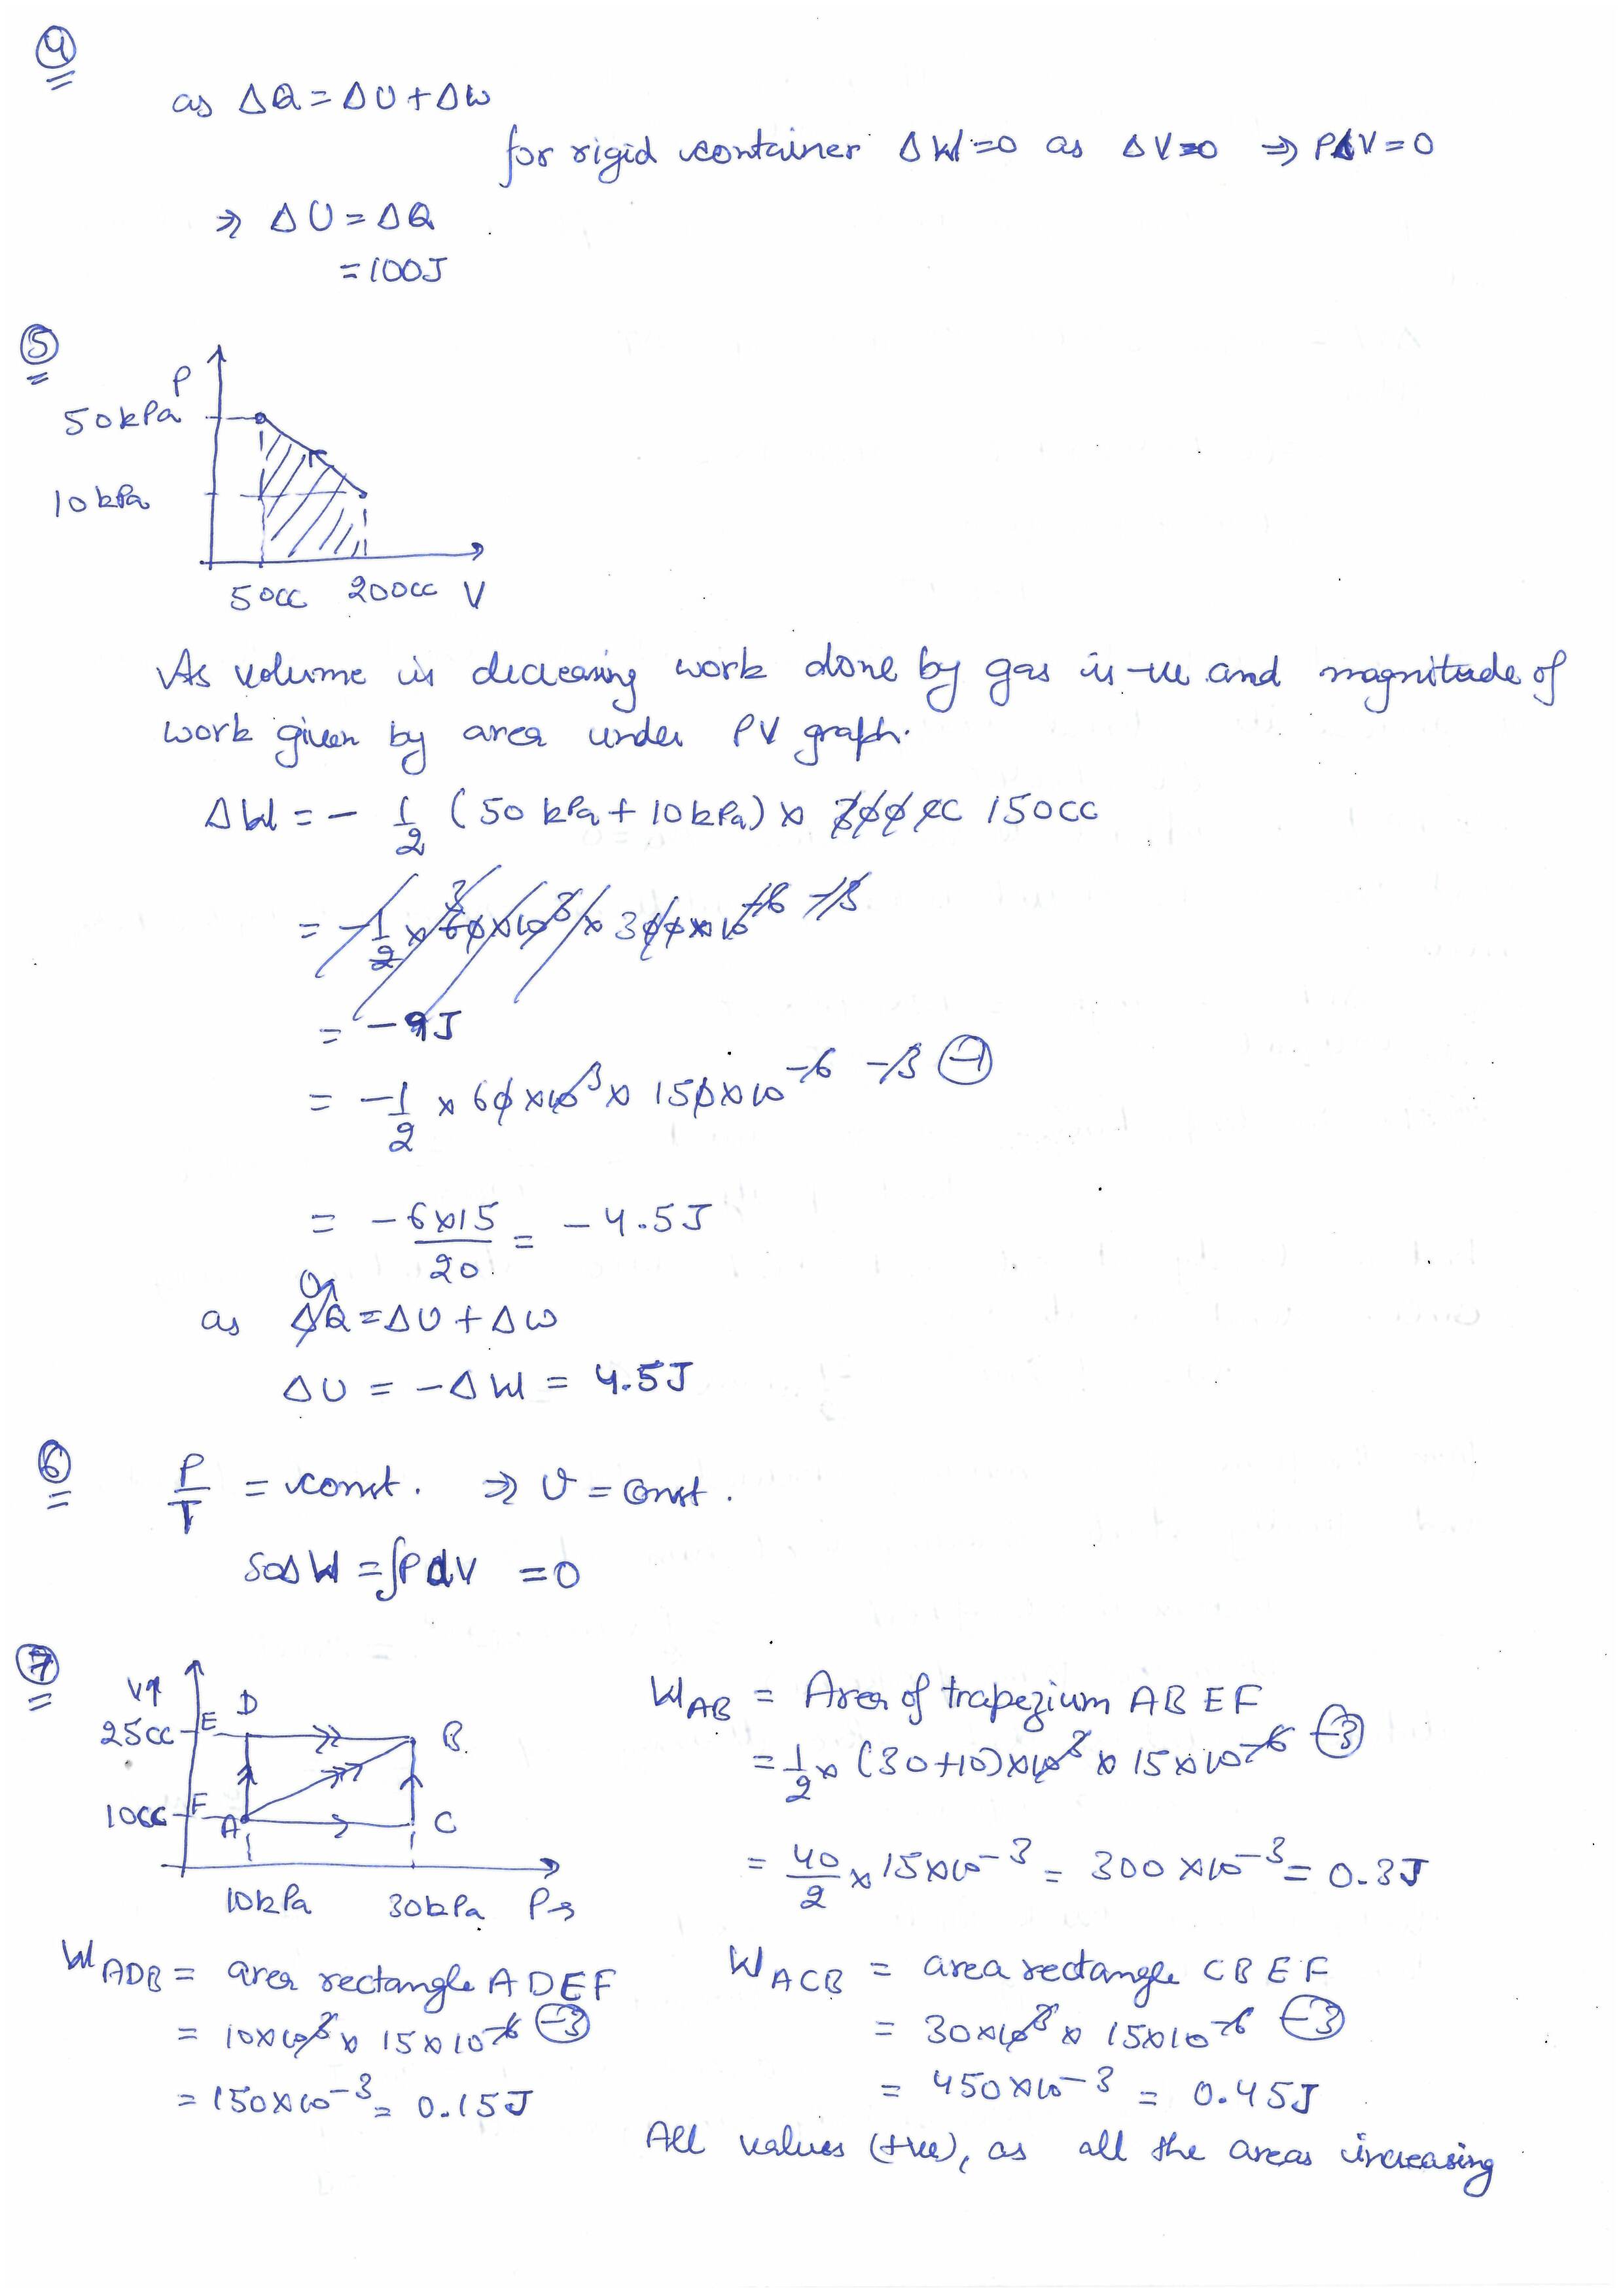 4
as ΔQ = ΔU + ΔW
for rigid container ΔW = 0 as ΔV = 0 ⇒ PΔV = 0
⇒ ΔU = ΔQ
= 100J
5
P
50 kPa
10 kPa
50cc 200cc V
As volume is decreasing work done by gas is -ve and magnitude of
work given by area under PV graph.
ΔW = - 1/2 (50 kPa + 10 kPa) × 300 cc 150cc
= -1/2 × 60 × 10^3 × 300 × 10^-6 -3
= -9J
= -1/2 × 60 × 10^3 × 150 × 10^-6 -3 -1
= -6×15/20 = -4.5J
0
as ΔQ = ΔU + ΔW
ΔU = -ΔW = 4.5J
6
P/T = const. ⇒ V = const.
So ΔW = ∫PdV = 0
7
V↑ D
25cc E B
10cc F A C
10kPa 30kPa P→
W_AB = Area of trapezium ABEF
= 1/2 × (30+10) × 10^3 × 15 × 10^-6 -3
= 40/2 × 15 × 10^-3 = 300 × 10^-3 = 0.3J
W_ADB = area rectangle ADEF
= 10 × 10^3 × 15 × 10^-6 -3
= 150 × 10^-3 = 0.15J
W_ACB = area rectangle CBEF
= 30 × 10^3 × 15 × 10^-6 -3
= 450 × 10^-3 = 0.45J
All values (+ve), as all the areas increasing